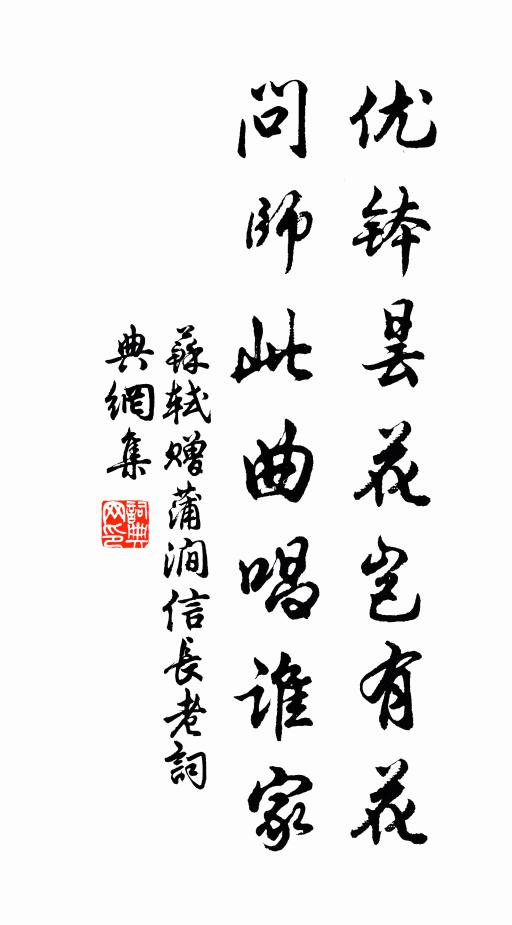 优钵昙花岂有花
问师此曲唱谁家
蘇軾赠蒲澗信長老詞
典網集
詞典
网印